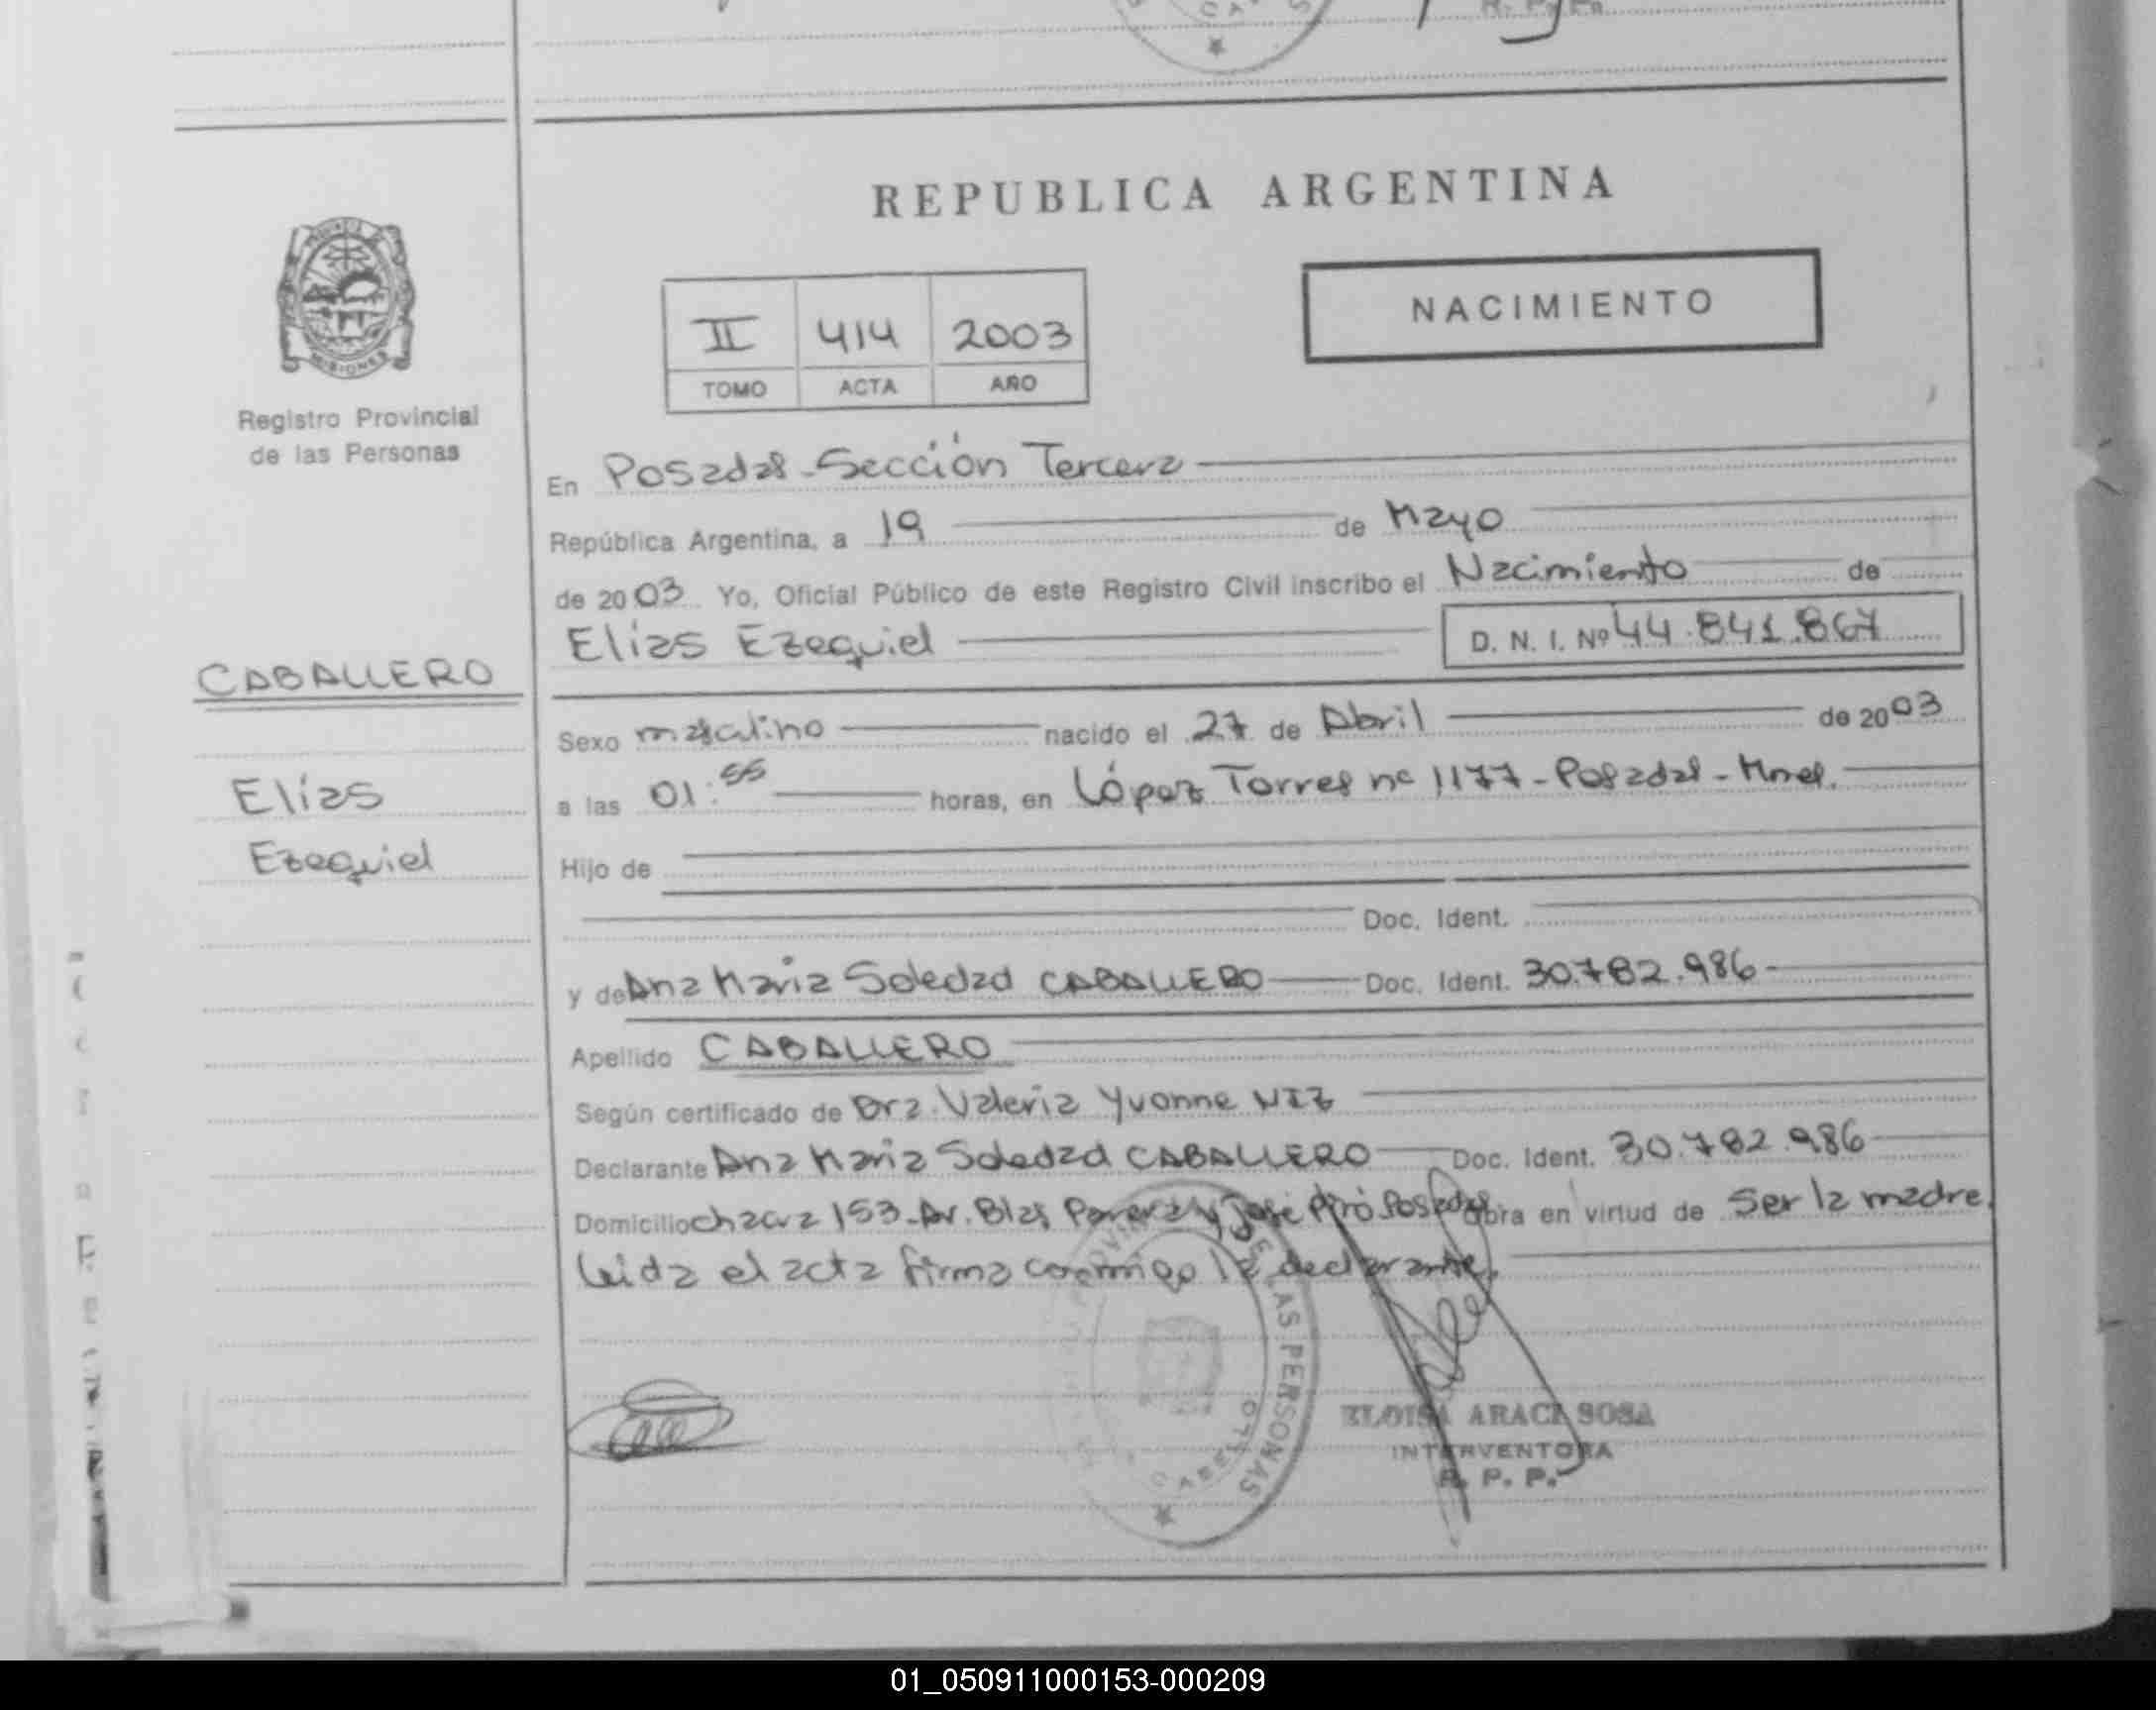 REPUBLICA ARGENTINA
NACIMIENTO
II 414 2003
TOMO ACTA AÑO
MISIONES
Registro Provincial
de las Personas
En Posadas - Sección Tercera
República Argentina, a 19 de Mayo
de 2003 Yo, Oficial Público de este Registro Civil inscribo el Nacimiento de
Elias Ezequiel D. N. I. Nº 44.841.867
CABALLERO
Elias
Ezequiel
Sexo masculino nacido el 27 de Abril de 2003
a las 01:55 horas, en López Torres nº 1177 - Posadas - Mnes.
Hijo de
Doc. Ident.
y de Ana Maria Soledad CABALLERO Doc. Ident. 30.782.986 -
Apellido CABALLERO
Según certificado de Dra. Valeria Yvonne NIZ
Declarante Ana Maria Soledad CABALLERO Doc. Ident. 30.782.986
Domicilio chacra 153 - Av. Blas Parera y José Posadas Obra en virtud de Ser la madre.
Leida el acta firma conmigo la declarante.
LAS PERSONAS
ELOISA ARACI SOSA
INTERVENTORA
R. P. P.
01_050911000153-000209